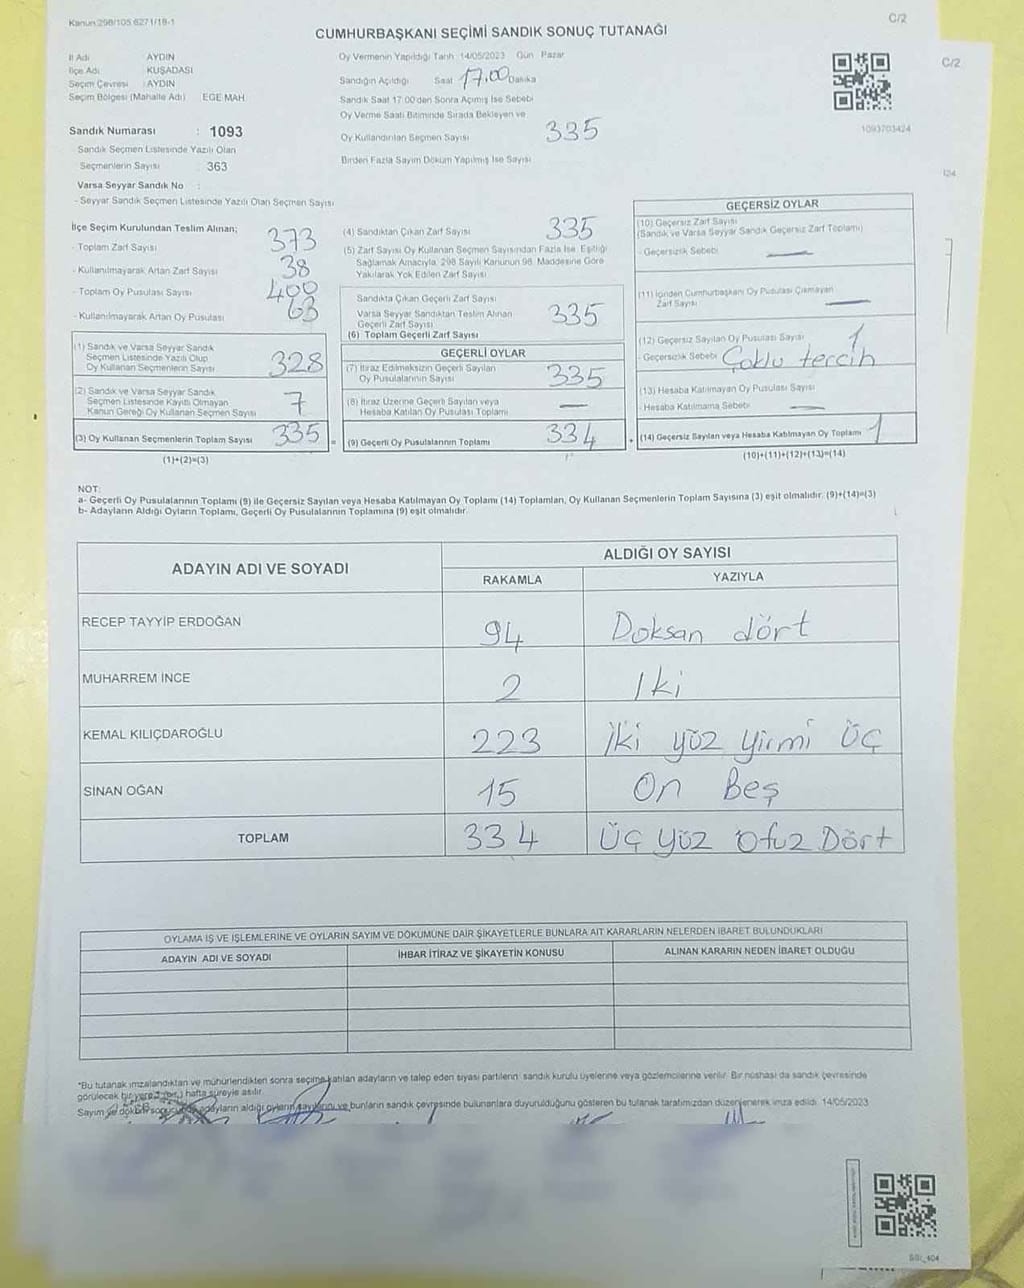 Kanun 298/105 6271/18-1
C/2
CUMHURBAŞKANI SEÇİMİ SANDIK SONUÇ TUTANAĞI
C/2
İl Adı AYDIN
İlçe Adı KUŞADASI
Seçim Çevresi : AYDIN
Seçim Bölgesi (Mahalle Adı) EGE MAH
Sandık Numarası : 1093
- Sandık Seçmen Listesinde Yazılı Olan
Seçmenlerin Sayısı : 363
Varsa Seyyar Sandık No :
- Seyyar Sandık Seçmen Listesinde Yazılı Olan Seçmen Sayısı
Oy Vermenin Yapıldığı Tarih 14/05/2023 Gün Pazar
Sandığın Açıldığı Saat 17.00 Dakika
Sandık Saat 17:00'den Sonra Açımış İse Sebebi
Oy Verme Saati Bitiminde Sırada Bekleyen ve
Oy Kullandırılan Seçmen Sayısı 335
Birden Fazla Sayım Döküm Yapılmış İse Sayısı
1093703424
İlçe Seçim Kurulundan Teslim Alınan;
- Toplam Zarf Sayısı 373
- Kullanılmayarak Artan Zarf Sayısı 38
- Toplam Oy Pusulası Sayısı 400
- Kullanılmayarak Artan Oy Pusulası 63
(1) Sandık ve Varsa Seyyar Sandık
Seçmen Listesinde Yazılı Olup
Oy Kullanan Seçmenlerin Sayısı 328
(2) Sandık ve Varsa Seyyar Sandık
Seçmen Listesinde Kayıtlı Olmayan
Kanun Gereği Oy Kullanan Seçmen Sayısı 7
(3) Oy Kullanan Seçmenlerin Toplam Sayısı 335 =
(1)+(2)=(3)
(4) Sandıktan Çıkan Zarf Sayısı 335
(5) Zarf Sayısı Oy Kullanan Seçmen Sayısından Fazla İse, Eşitliği
Sağlamak Amacıyla, 298 Sayılı Kanunun 98. Maddesine Göre
Yakılarak Yok Edilen Zarf Sayısı
Sandıkta Çıkan Geçerli Zarf Sayısı
Varsa Seyyar Sandıktan Teslim Alınan
Geçerli Zarf Sayısı 335
(6) Toplam Geçerli Zarf Sayısı
GEÇERLİ OYLAR
(7) İtiraz Edilmeksizin Geçerli Sayılan
Oy Pusulalarının Sayısı 335
(8) İtiraz Üzerine Geçerli Sayılan veya
Hesaba Katılan Oy Pusulası Toplamı —
(9) Geçerli Oy Pusulalarının Toplamı 334 +
GEÇERSİZ OYLAR
(10) Geçersiz Zarf Sayısı
(Sandık ve Varsa Seyyar Sandık Geçersiz Zarf Toplamı)
- Geçersizlik Sebebi —
(11) İçinden Cumhurbaşkanı Oy Pusulası Çıkmayan
Zarf Sayısı —
(12) Geçersiz Sayılan Oy Pusulası Sayısı 1
- Geçersizlik Sebebi Çoklu tercih
(13) Hesaba Katılmayan Oy Pusulası Sayısı
- Hesaba Katılmama Sebebi —
(14) Geçersiz Sayılan veya Hesaba Katılmayan Oy Toplamı 1
(10)+(11)+(12)+(13)=(14)
NOT:
a- Geçerli Oy Pusulalarının Toplamı (9) ile Geçersiz Sayılan veya Hesaba Katılmayan Oy Toplamı (14) Toplamları, Oy Kullanan Seçmenlerin Toplam Sayısına (3) eşit olmalıdır. (9)+(14)=(3)
b- Adayların Aldığı Oyların Toplamı, Geçerli Oy Pusulalarının Toplamına (9) eşit olmalıdır.
ADAYIN ADI VE SOYADI ALDIĞI OY SAYISI
RAKAMLA YAZIYLA
RECEP TAYYİP ERDOĞAN 94 Doksan dört
MUHARREM İNCE 2 Iki
KEMAL KILIÇDAROĞLU 223 İki yüz yirmi üç
SİNAN OĞAN 15 On Beş
TOPLAM 334 Üç yüz Otuz Dört
OYLAMA İŞ VE İŞLEMLERİNE VE OYLARIN SAYIM VE DÖKÜMÜNE DAİR ŞİKAYETLERLE BUNLARA AİT KARARLARIN NELERDEN İBARET BULUNDUKLARI
ADAYIN ADI VE SOYADI İHBAR İTİRAZ VE ŞİKAYETİN KONUSU ALINAN KARARIN NEDEN İBARET OLDUĞU
*Bu tutanak imzalandıktan ve mühürlendikten sonra seçime katılan adayların ve talep eden siyasi partilerin sandık kurulu üyelerine veya gözlemcilerine verilir. Bir nüshası da sandık çevresinde
görülecek bir yere 1 (bir) hafta süreyle asılır.
Sayım ve döküm sonucunda adayların aldığı oyların sayılarını ve bunların sandık çevresinde bulunanlara duyurulduğunu gösteren bu tutanak tarafımızdan düzenlenerek imza edildi. 14/05/2023